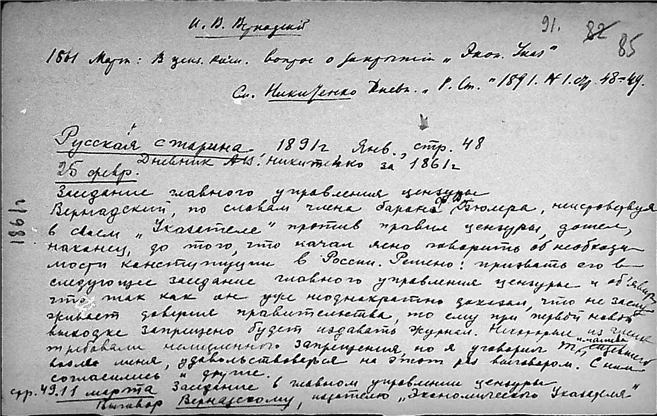 И. В. Вернадский
91. 82 85
1861 Март: В ценз. ком. вопрос о закрытии „Экон. Указ"
См. Никитенко Дневн. „Р. Ст." 1891. № 1. стр. 48-49.
Русская старина, 1891г, Янв., стр. 48
Дневник А.В. Никитенко за 1861г
25 февр.
Заседание главного управления цензуры
Вернадский, по словам члена барона Ф. Бюлера, неистовствуя
в своем „Указателе" против правил цензуры, дошел,
наконец, до того, что начал ясно говорить об необходи
мости конституции в России. Решено: призвать его в
следующее заседание главного управления цензуры и объявить,
что так как он уже неоднократно доказал, что не заслу
живает доверия правительства, то ему при первой новой
выходке запрещено будет издавать журнал. Некоторые из членов
требовали немедленного запрещения, но я уговорил
возле меня, удовольствоваться на этот раз выговором. С ним
согласились и другие.
стр. 49. 11 марта Заседание в главном управлении цензуры
Выговор Вернадскому, издателю „Экономического Указателя"
1861г